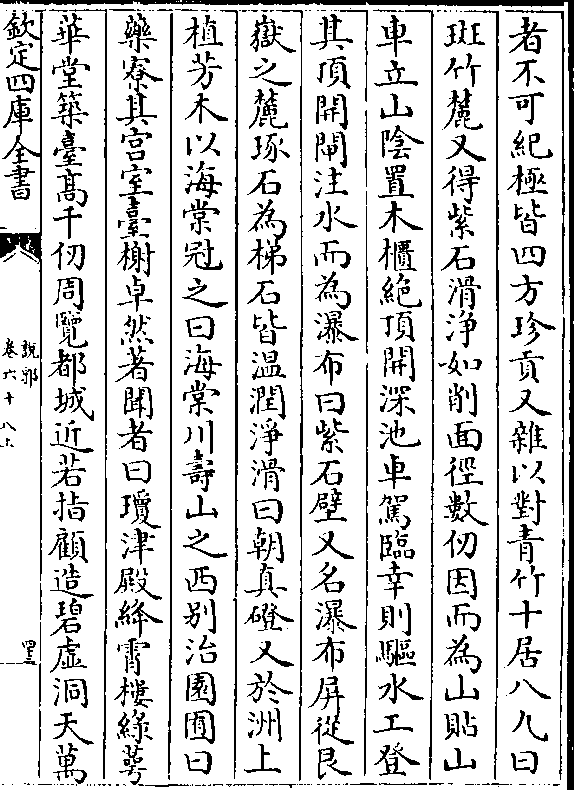 者不可紀極皆四方珍貢又雜以對青竹十居八九曰
斑竹麓又得紫石滑淨如削面徑數仞因而為山貼山
車立山陰置木櫃絶頂開深池車駕臨幸則驅水工登
其頂開閘注水而為瀑布曰紫石壁又名瀑布屏從艮
嶽之麓琢石為梯石皆温潤淨滑曰朝真磴又於洲上
植芳木以海棠冠之曰海棠川壽山之西别治園囿曰
藥寮其宫室臺榭卓然著聞者曰瓊津殿絳霄樓緑萼
華堂築臺髙千仞周覽都城近若指顧造碧虚洞天萬
欽定四庫全書
說郛
卷六十八上